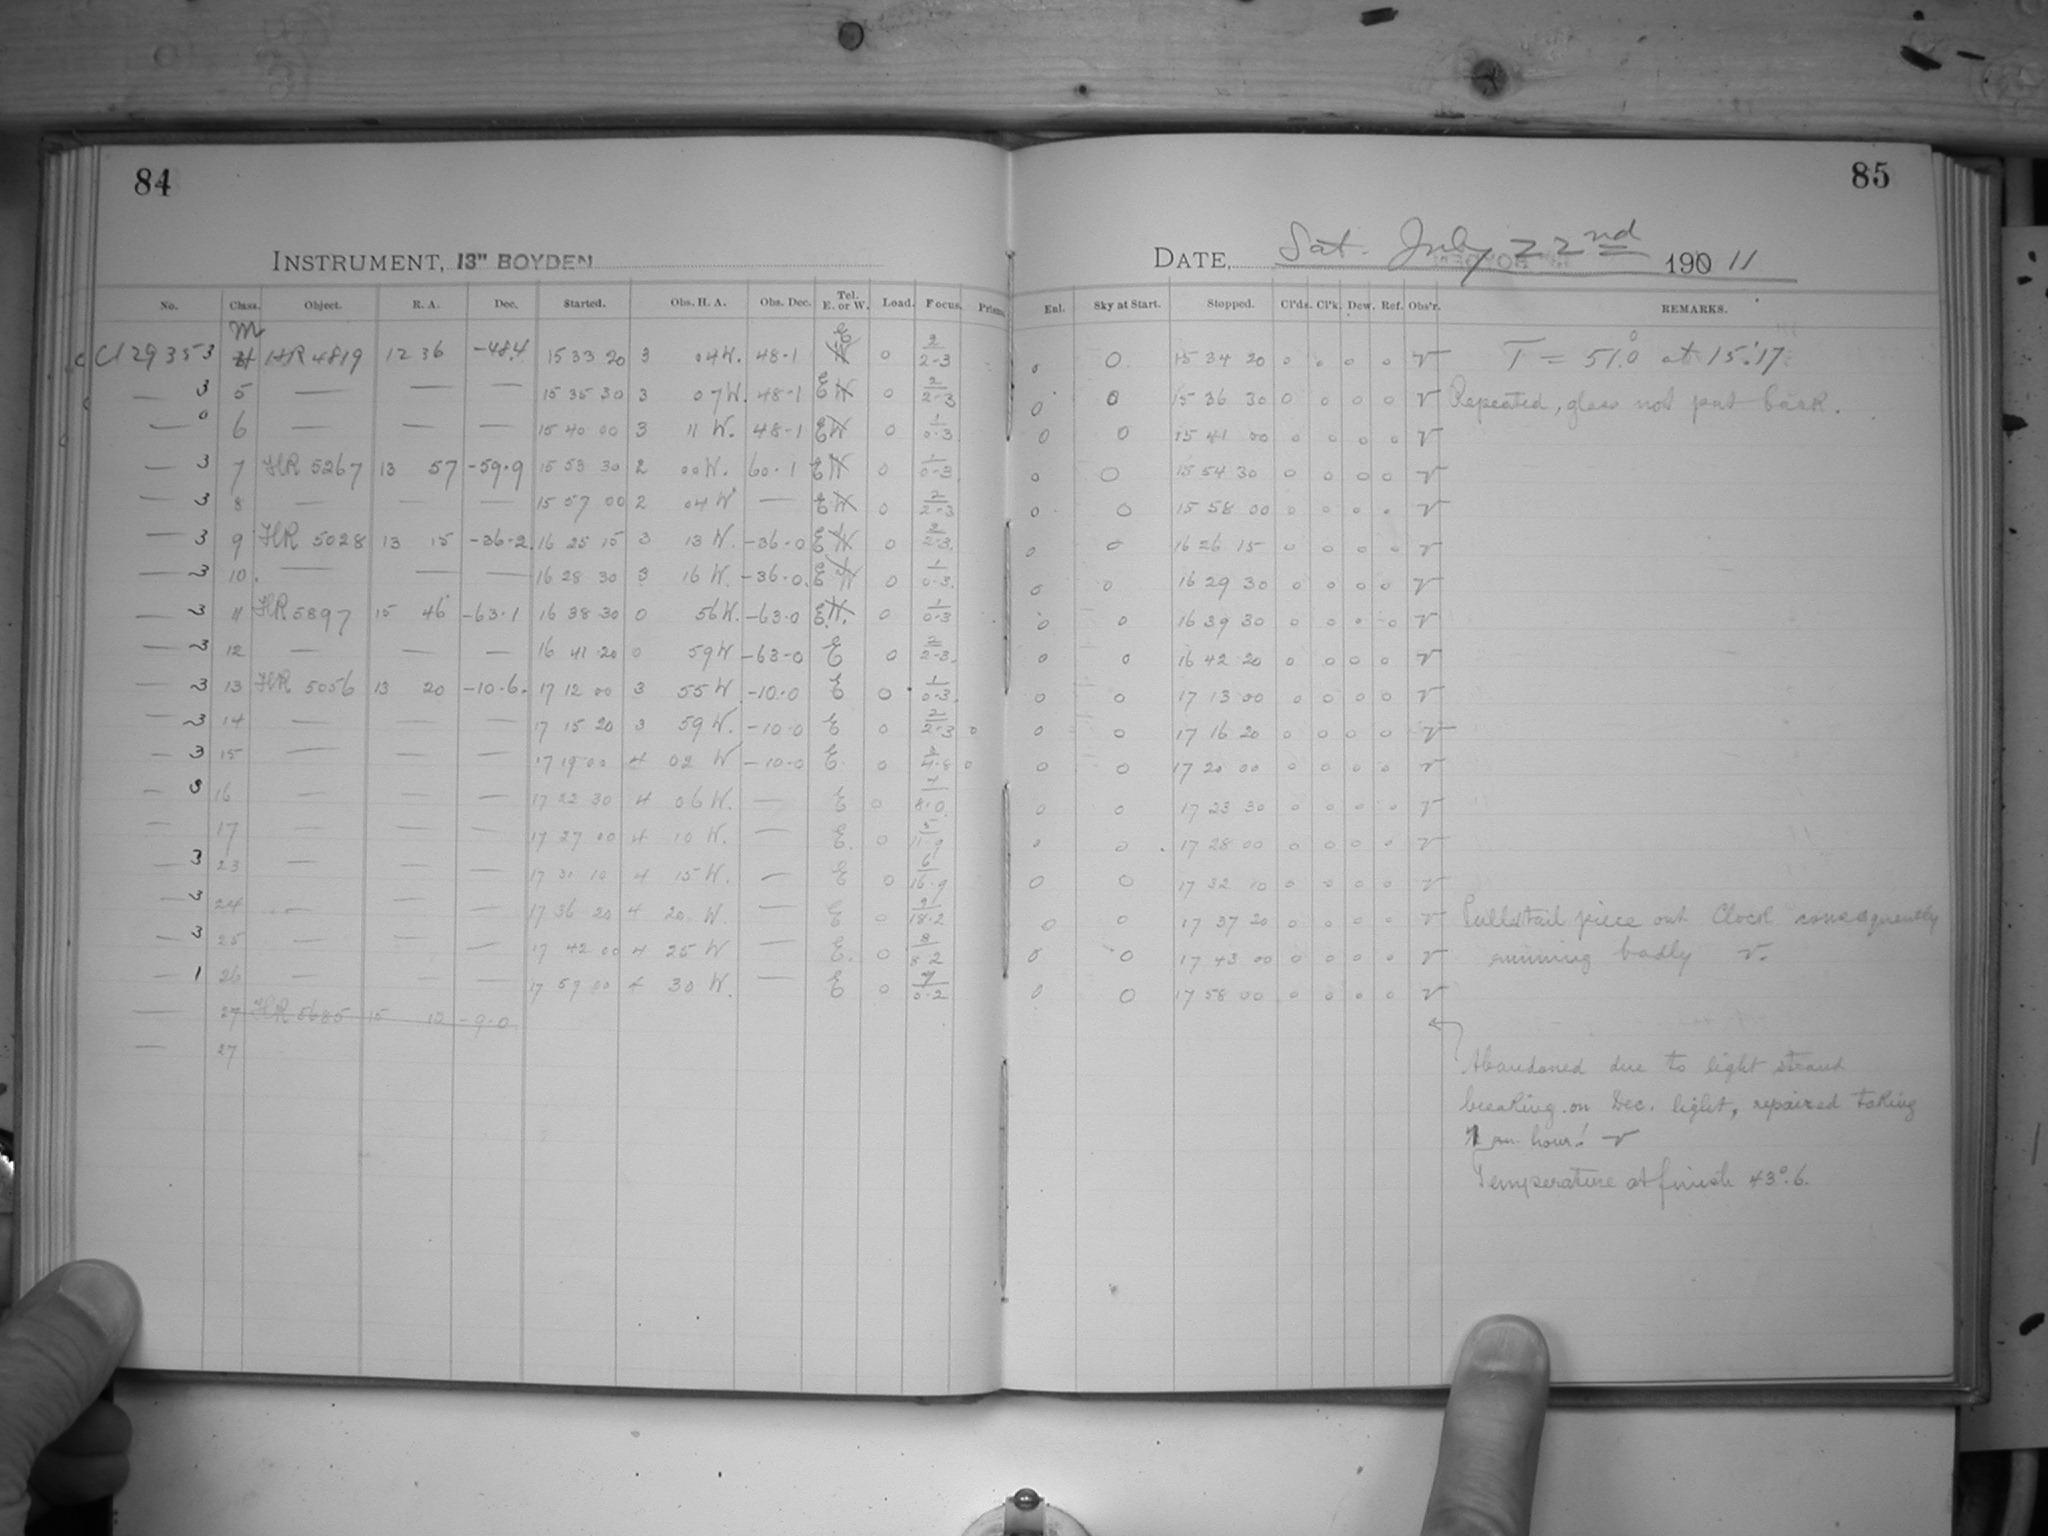 84
85
INSTRUMENT, 13" BOYDEN
DATE, Sat. July 22nd 190 11
No. Class. Object. R. A. Dec. Started. Obs. H. A. Obs. Dec. Tel. E. or W. Load. Focus. Prisms
Enl. Sky at Start. Stopped. Cl'ds. Cl'k. Dew. Ref. Obs'r. REMARKS.
M
C1 29353 4 HR 4819 12 36 -48.4 15 33 20 3 04 W. 48-1 E W 0 2/2-3 0 0 15 34 20 0 0 0 0 V T = 51.°0 at 15:17
— 3 5 — — — 15 35 30 3 07 W. 48-1 E W 0 2/2-3 0 0 15 36 30 0 0 0 0 V Repeated, glass not put back.
— 0 6 — — — 15 40 00 3 11 W. 48-1 E W 0 1/0.3 0 0 15 41 00 0 0 0 0 V
— 3 7 HR 5267 13 57 -59.9 15 53 30 2 00 W. 60.1 E W 0 1/0-3 0 0 15 54 30 0 0 0 0 V
— 3 8 — — — 15 57 00 2 04 W — E W 0 2/2-3 0 0 15 58 00 0 0 0 0 V
— 3 9 HR 5028 13 15 -36-2 16 25 15 3 13 W. -36-0 E W 0 2/2-3 0 0 16 26 15 0 0 0 0 V
— 3 10. — — — 16 28 30 3 16 W. -36-0. E W 0 1/0-3. 0 0 16 29 30 0 0 0 0 V
— 3 11 HR 5897 15 46 -63.1 16 38 30 0 56 W. -63.0 E. W. 0 1/0-3 0 0 16 39 30 0 0 0 0 V
— 3 12 — — — 16 41 20 0 59 W -63-0 E 0 2/2-3. 0 0 16 42 20 0 0 0 0 V
— 3 13 HR 5056 13 20 -10.6. 17 12 00 3 55 W -10.0 E 0 1/0-3. 0 0 17 13 00 0 0 0 0 V
— 3 14 — — — 17 15 20 3 59 W. -10.0 E 0 2/2-3 0 0 0 17 16 20 0 0 0 0 V
— 3 15 — — — 17 19 00 4 02 W -10.0 E. 0 0 0 0 17 20 00 0 0 0 0 V
— 3 16 — — — 17 22 30 4 06 W. — E 0 4/8.0 0 0 17 23 30 0 0 0 0 V
— 17 — — — 17 27 00 4 10 W. — E. 0 5/11.9 0 0 17 28 00 0 0 0 0 V
— 3 23 — — 17 31 10 4 15 W. — E 0 6/16.9 0 0 17 32 10 0 0 0 0 V
— 3 24 — — — 17 36 20 4 20 W. — E 0 9/18.2 0 0 17 37 20 0 0 0 0 V Pulled tail piece out Clock consequently
— 3 25 — — — 17 42 00 4 25 W — E. 0 8/8.2 0 0 17 43 00 0 0 0 0 V running badly V.
— 1 26 — — — 17 57 00 4 30 W. — E 0 7/0.2 0 0 17 58 00 0 0 0 0 V
— 27 HR 5685 15 12 -9.0
— 27
Abandoned due to light strand
breaking on Dec. light, repaired taking
an hour! V
Temperature at finish 43°.6.